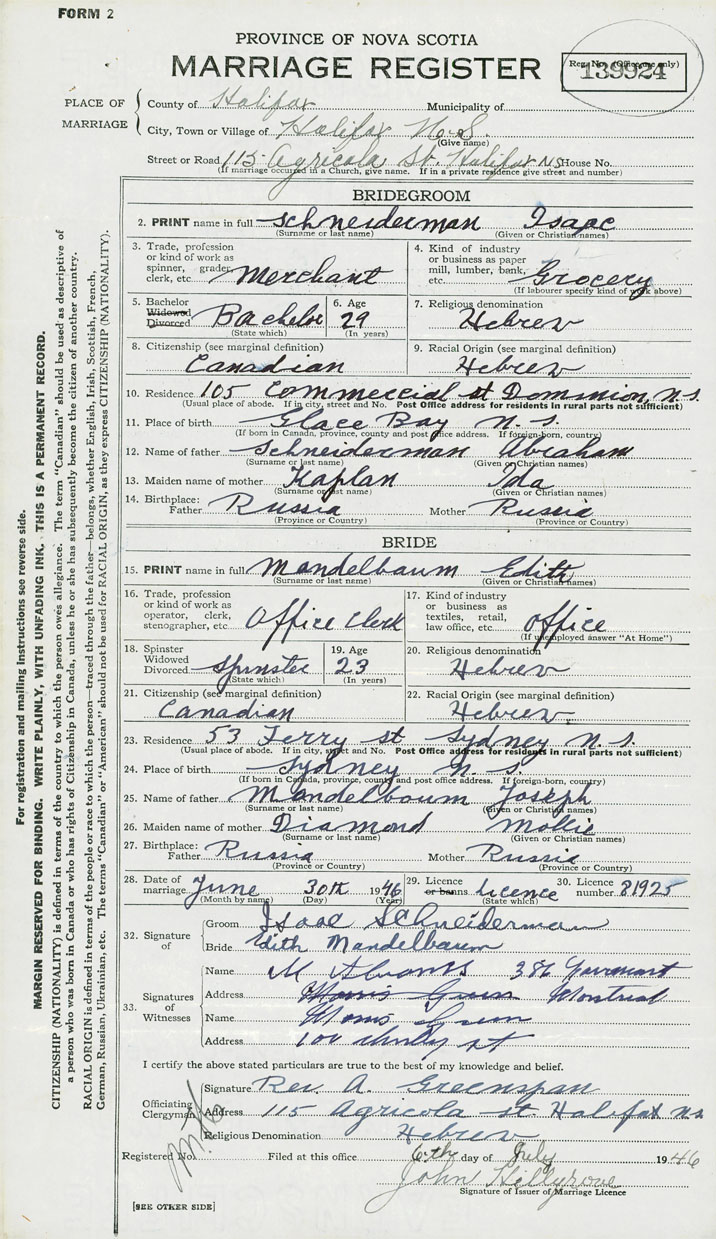 FORM 2
PROVINCE OF NOVA SCOTIA
MARRIAGE REGISTER
Reg. No. (Office use only)
139924
PLACE OF MARRIAGE
County of Halifax Municipality of
City, Town or Village of Halifax N.S.
(Give name)
Street or Road 115 Agricola St. Halifax NS House No.
(If marriage occurred in a Church, give name. If in a private residence give street and number)
BRIDEGROOM
2. PRINT name in full Schneiderman Isaac
(Surname or last name) (Given or Christian names)
3. Trade, profession or kind of work as spinner, grader, clerk, etc. Merchant
4. Kind of industry or business as paper mill, lumber, bank, etc. Grocery
(If labourer specify kind of work above)
5. Bachelor Widowed Divorced Bachelor
(State which)
6. Age 29
(In years)
7. Religious denomination
Hebrew
8. Citizenship (see marginal definition)
Canadian
9. Racial Origin (see marginal definition)
Hebrew
10. Residence 105 Commercial st Dominion, N.S.
(Usual place of abode. If in city, street and No. Post Office address for residents in rural parts not sufficient)
11. Place of birth Glace Bay N.S.
(If born in Canada, province, county and post office address. If foreign-born, country)
12. Name of father Schneiderman Abraham
(Surname or last name) (Given or Christian names)
13. Maiden name of mother Kaplan Ida
(Surname or last name) (Given or Christian names)
14. Birthplace: Father Russia Mother Russia
(Province or Country) (Province or Country)
BRIDE
15. PRINT name in full Mandelbaum Edith
(Surname or last name) (Given or Christian names)
16. Trade, profession or kind of work as operator, clerk, stenographer, etc. Office Clerk
17. Kind of industry or business as textiles, retail, law office, etc. office
(If unemployed answer "At Home")
18. Spinster Widowed Divorced Spinster
(State which)
19. Age 23
(In years)
20. Religious denomination
Hebrew
21. Citizenship (see marginal definition)
Canadian
22. Racial Origin (see marginal definition)
Hebrew
23. Residence 53 Ferry st Sydney N.S.
(Usual place of abode. If in city, street and No. Post Office address for residents in rural parts not sufficient)
24. Place of birth Sydney N.S.
(If born in Canada, province, county and post office address. If foreign-born, country)
25. Name of father Mandelbaum Joseph
(Surname or last name) (Given or Christian names)
26. Maiden name of mother Diamond Mollie
(Surname or last name) (Given or Christian names)
27. Birthplace: Father Russia Mother Russia
(Province or Country) (Province or Country)
28. Date of marriage June 30th 1946
(Month by name) (Day) (Year)
29. Licence or banns Licence
(State which)
30. Licence number 81925
32. Signature of
Groom Isaac Schneiderman
Bride Edith Mandelbaum
33. Signatures of Witnesses
Name M 386
Address Morris Green Montreal
Name Morris Green
Address 100 st
I certify the above stated particulars are true to the best of my knowledge and belief.
Officiating Clergyman
Signature Rev. A. Greenspan
Address 115 Agricola st. Halifax N.S.
Religious Denomination Hebrew
Registered No. Filed at this office 6th day of July 1946
John
Signature of Issuer of Marriage Licence
[SEE OTHER SIDE]
For registration and mailing instructions see reverse side.
MARGIN RESERVED FOR BINDING. WRITE PLAINLY, WITH UNFADING INK. THIS IS A PERMANENT RECORD.
CITIZENSHIP (NATIONALITY) is defined in terms of the country to which the person owes allegiance. The term "Canadian" should be used as descriptive of
a person who was born in Canada or who has rights of Citizenship in Canada, unless he or she has subsequently become the citizen of another country.
RACIAL ORIGIN is defined in terms of the people or race to which the person—traced through the father—belongs, whether English, Irish, Scottish, French,
German, Russian, Ukrainian, etc. The terms "Canadian" or "American" should not be used for RACIAL ORIGIN, as they express CITIZENSHIP (NATIONALITY).